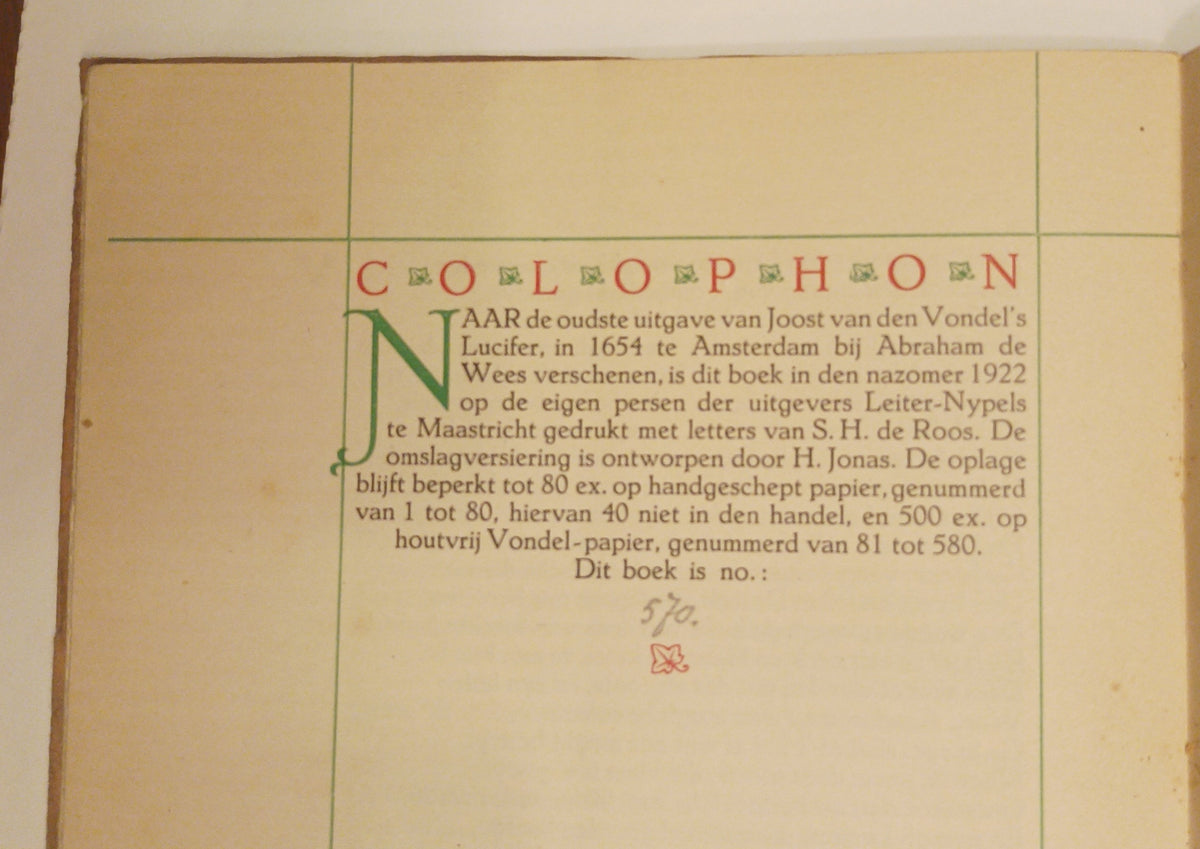 COLOPHON
NAAR de oudste uitgave van Joost van den Vondel's
Lucifer, in 1654 te Amsterdam bij Abraham de
Wees verschenen, is dit boek in den nazomer 1922
op de eigen persen der uitgevers Leiter-Nypels
te Maastricht gedrukt met letters van S. H. de Roos. De
omslagversiering is ontworpen door H. Jonas. De oplage
blijft beperkt tot 80 ex. op handgeschept papier, genummerd
van 1 tot 80, hiervan 40 niet in den handel, en 500 ex. op
houtvrij Vondel-papier, genummerd van 81 tot 580.
Dit boek is no.:
570.